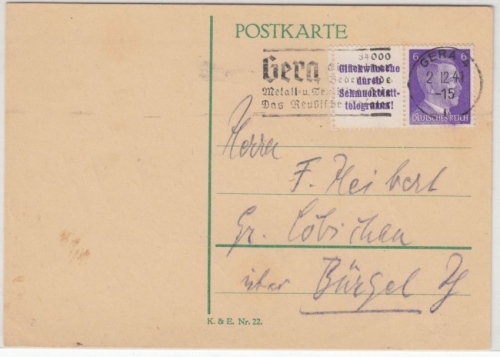 POSTKARTE
Gera
84000
Metall- u.
Das Reußische
Glückwünsche
durch
Schmuckblatt-
telegramm!
6
DEUTSCHES REICH
GERA
2.12.41
-15
Herrn
F. Heibert
Gr. Löbichau
über Bürgel Th
K. & E. Nr. 22.